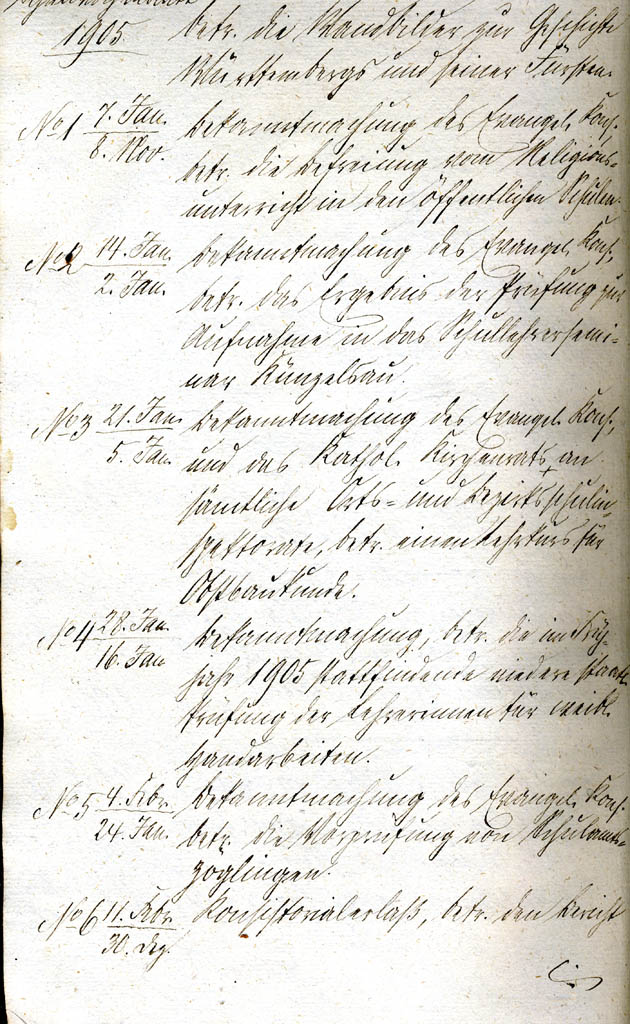 1905 betr. die Wandbilder zur Geschichte
Württembergs und seiner Fürsten.
No 1 7. Jan. Bekanntmachung des Evangel. Kons.
8. Nov. betr. die Befreiung vom Religions-
unterricht in den öffentlichen Schulen.
No 2 14. Jan. Bekanntmachung des Evangel. Kons.
2. Jan. betr. das Ergebnis der Prüfung zur
Aufnahme in das Schullehrersemi-
nar Künzelsau.
No 3 21. Jan. Bekanntmachung des Evangel. Kons.,
5. Jan. und des Kathol. Kirchenrats, an
sämtliche Orts- und Bezirksschulin-
spektorate, betr. einen Lehrkurs für
Obstbaukunde.
No 4 28. Jan. Bekanntmachung, betr. die im Früh-
16. Jan. jahr 1905 stattfindende niedere staatl.
Prüfung der Lehrerinnen für weibl.
Handarbeiten.
No 5 4. Febr. Bekanntmachung des Evangel. Kons.
24. Jan. betr. die Vorprüfung von Schulamts-
zöglingen.
No 6 11. Febr. Konsistorialerlaß, betr. den Bericht
30. Dez.